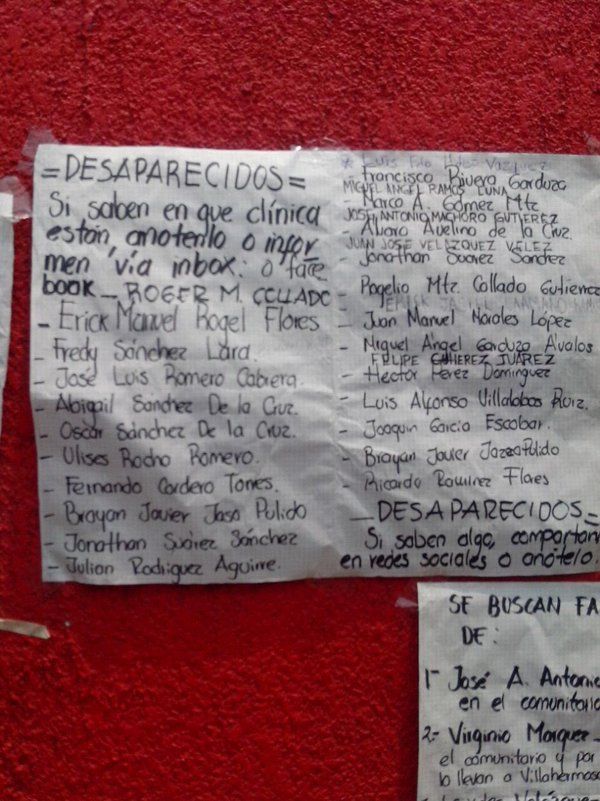 =DESAPARECIDOS=
Si saben en que clínica
están, anotenlo o infor
men vía inbox: o face
book_ ROGER M. COLLADO
- Erick Manuel Rogel Flores
- Fredy Sánchez Lara.
- José Luis Romero Cabrera.
- Abigail Sánchez De la Cruz.
- Oscar Sánchez De la Cruz.
- Ulises Rocho Romero.
- Fernando Cordero Torres.
- Brayan Javier Jaso Pulido
- Jonathan Suárez Sánchez
- Julian Rodriguez Aguirre.
* Luis Fdo Vazquez
- Francisco Rivera Garduza
MIGUEL ANGEL RAMOS LUNA
- Marco A. Gómez Mtz
JOSE ANTONIO MACHORO GUTIEREZ
- Alvaro Avelino de la Cruz.
JUAN JOSE VELAZQUEZ VELEZ
- Jonathan Suarez Sanchez
- Rogelio Mtz. Collado Gutierrez
- Juan Manuel Morales López
- Miguel Angel Garduza Avalos
FELIPE GUTIEREZ JUÁREZ
- Hector Perez Dominguez
- Luis Alfonso Villalobos Ruiz.
- Joaquin Garcia Escobar.
- Brayan Javier Jazzo Pulido
- Ricardo Ramirez Flores
_DESAPARECIDOS=
Si saben algo, compartan
en redes sociales o anótelo.
SE BUSCAN FA
DE:
1- José A. Antonio
en el comunitario
2.- Virginio Marquez
el comunitario y por
lo llevan a Villahermosa